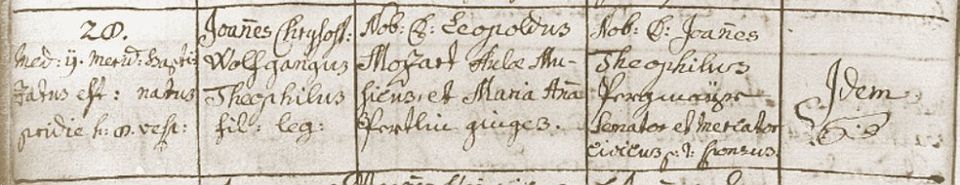 28.
med: 11. merid: baptizatus est: natus
pridie h: 8. vesp:
Joan̄es Chrÿsost:
Wolfgangus
Theophilus
fil: leg:
Nob: D: Leopoldus
Mozart Aulæ Mu-
sicus, et Maria An̄a
Pertlin giuges.
Nob: D: Joan̄es
Theophilus
Pergmaÿr
Senator et Mercator
civicus p: t: sponsus.
Idem